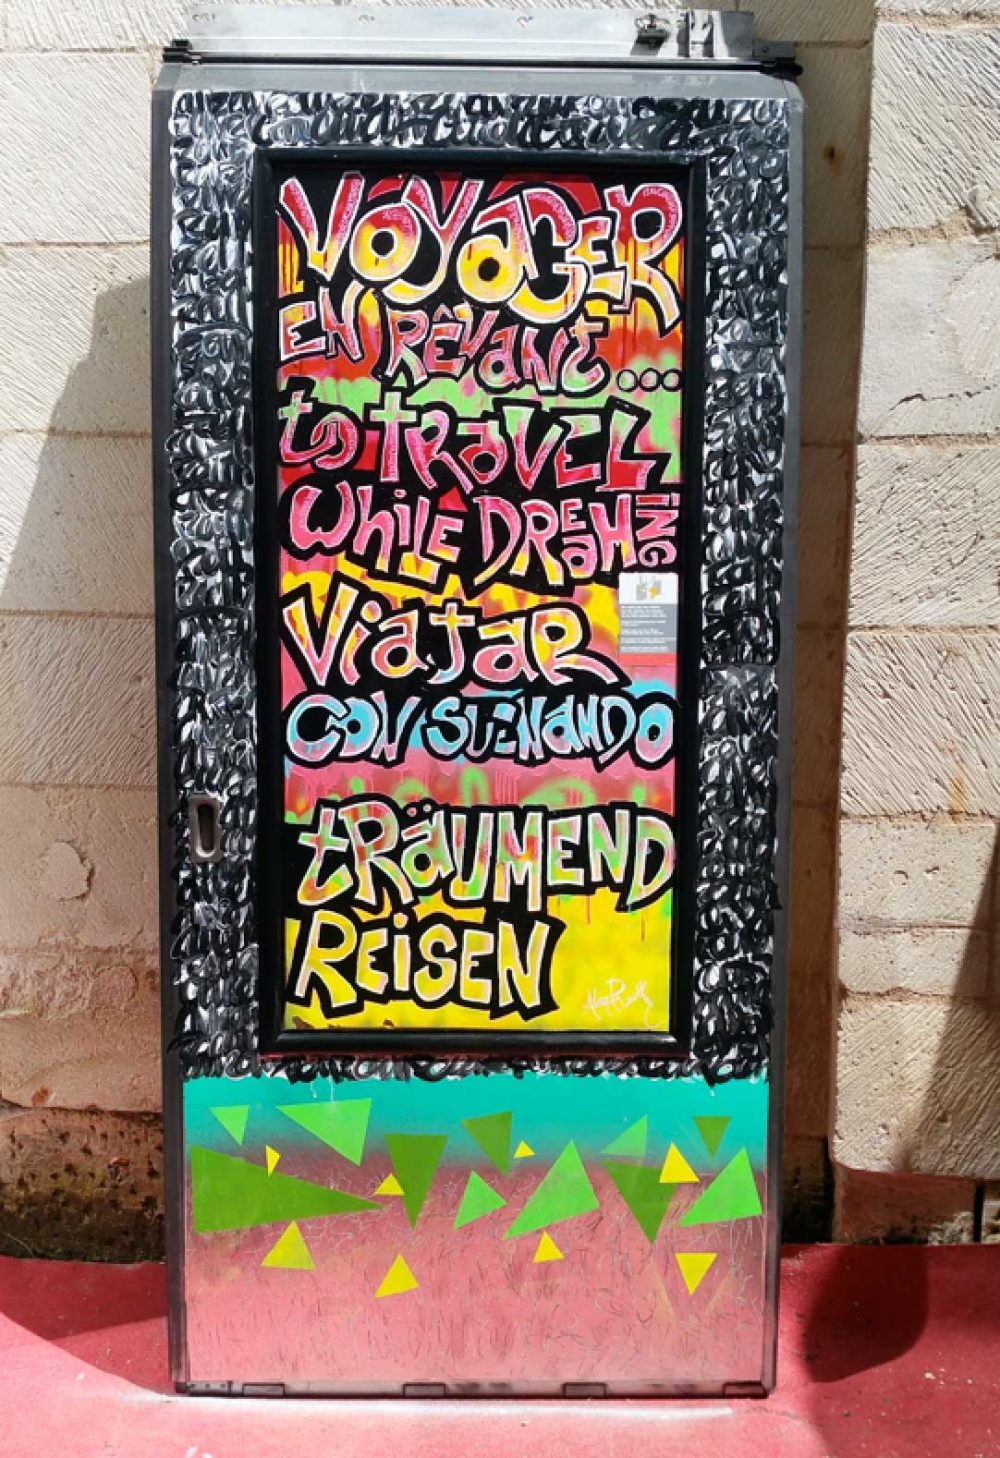 VOYAGER
EN RêVANt ...
to tRAVEL
WhiLE DREAMiNG
ViAJAR
CON SUENANDO
tRäUMEND
REiSEN